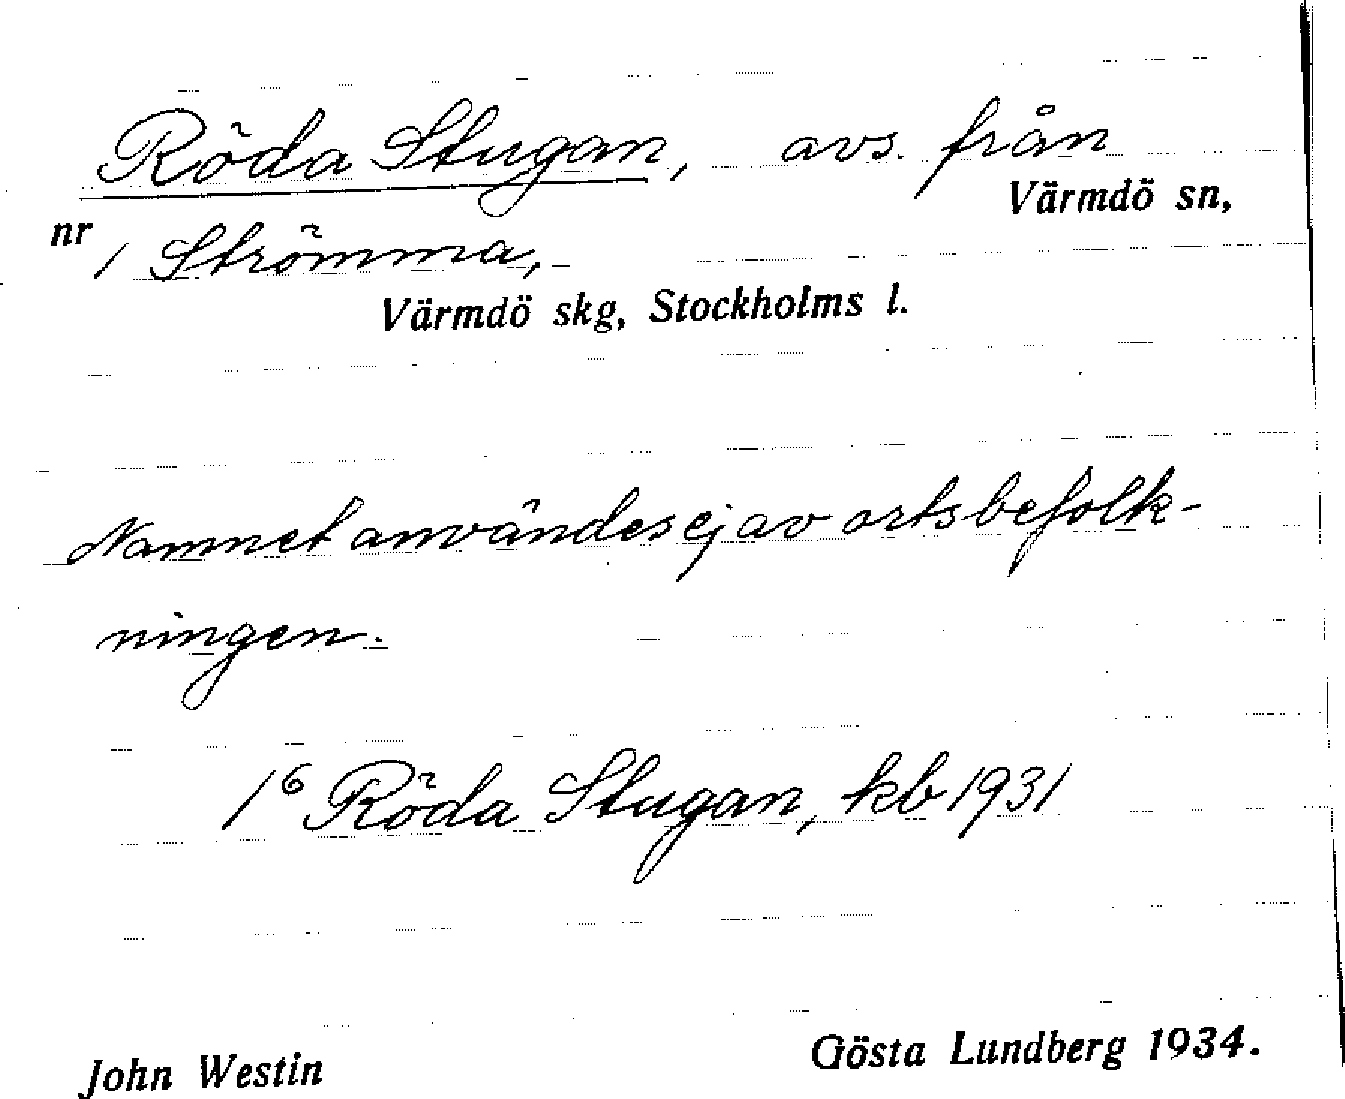 Röda Stugan, avs. från
Värmdö sn,
nr 1 Strömma,
Värmdö skg, Stockholms l.
Namnet användes ej av ortsbefolk-
ningen.
1⁶ Röda Stugan, kb 1931
John Westin Gösta Lundberg 1934.